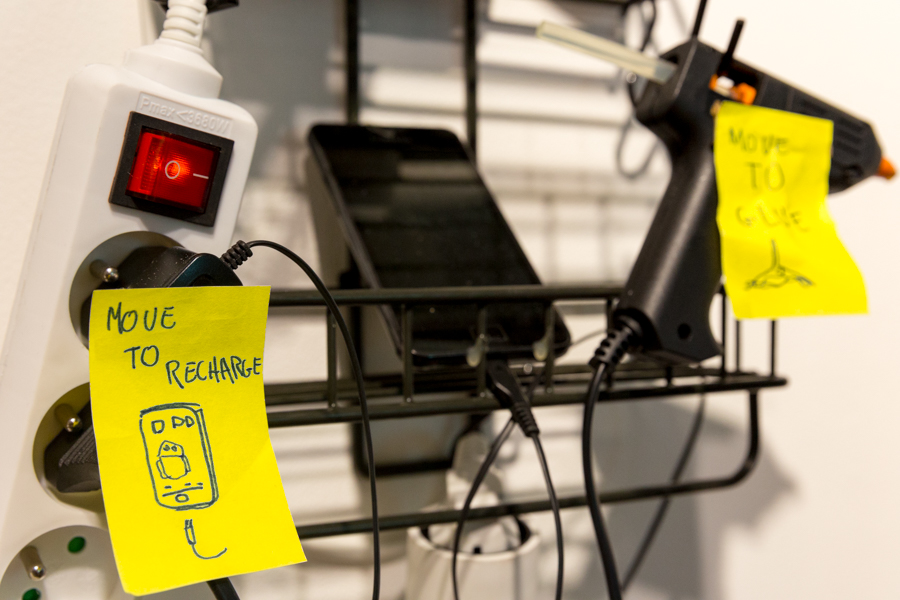 Pmax<3680W
MOVE
TO
RECHARGE
MOVE
TO
GLUE